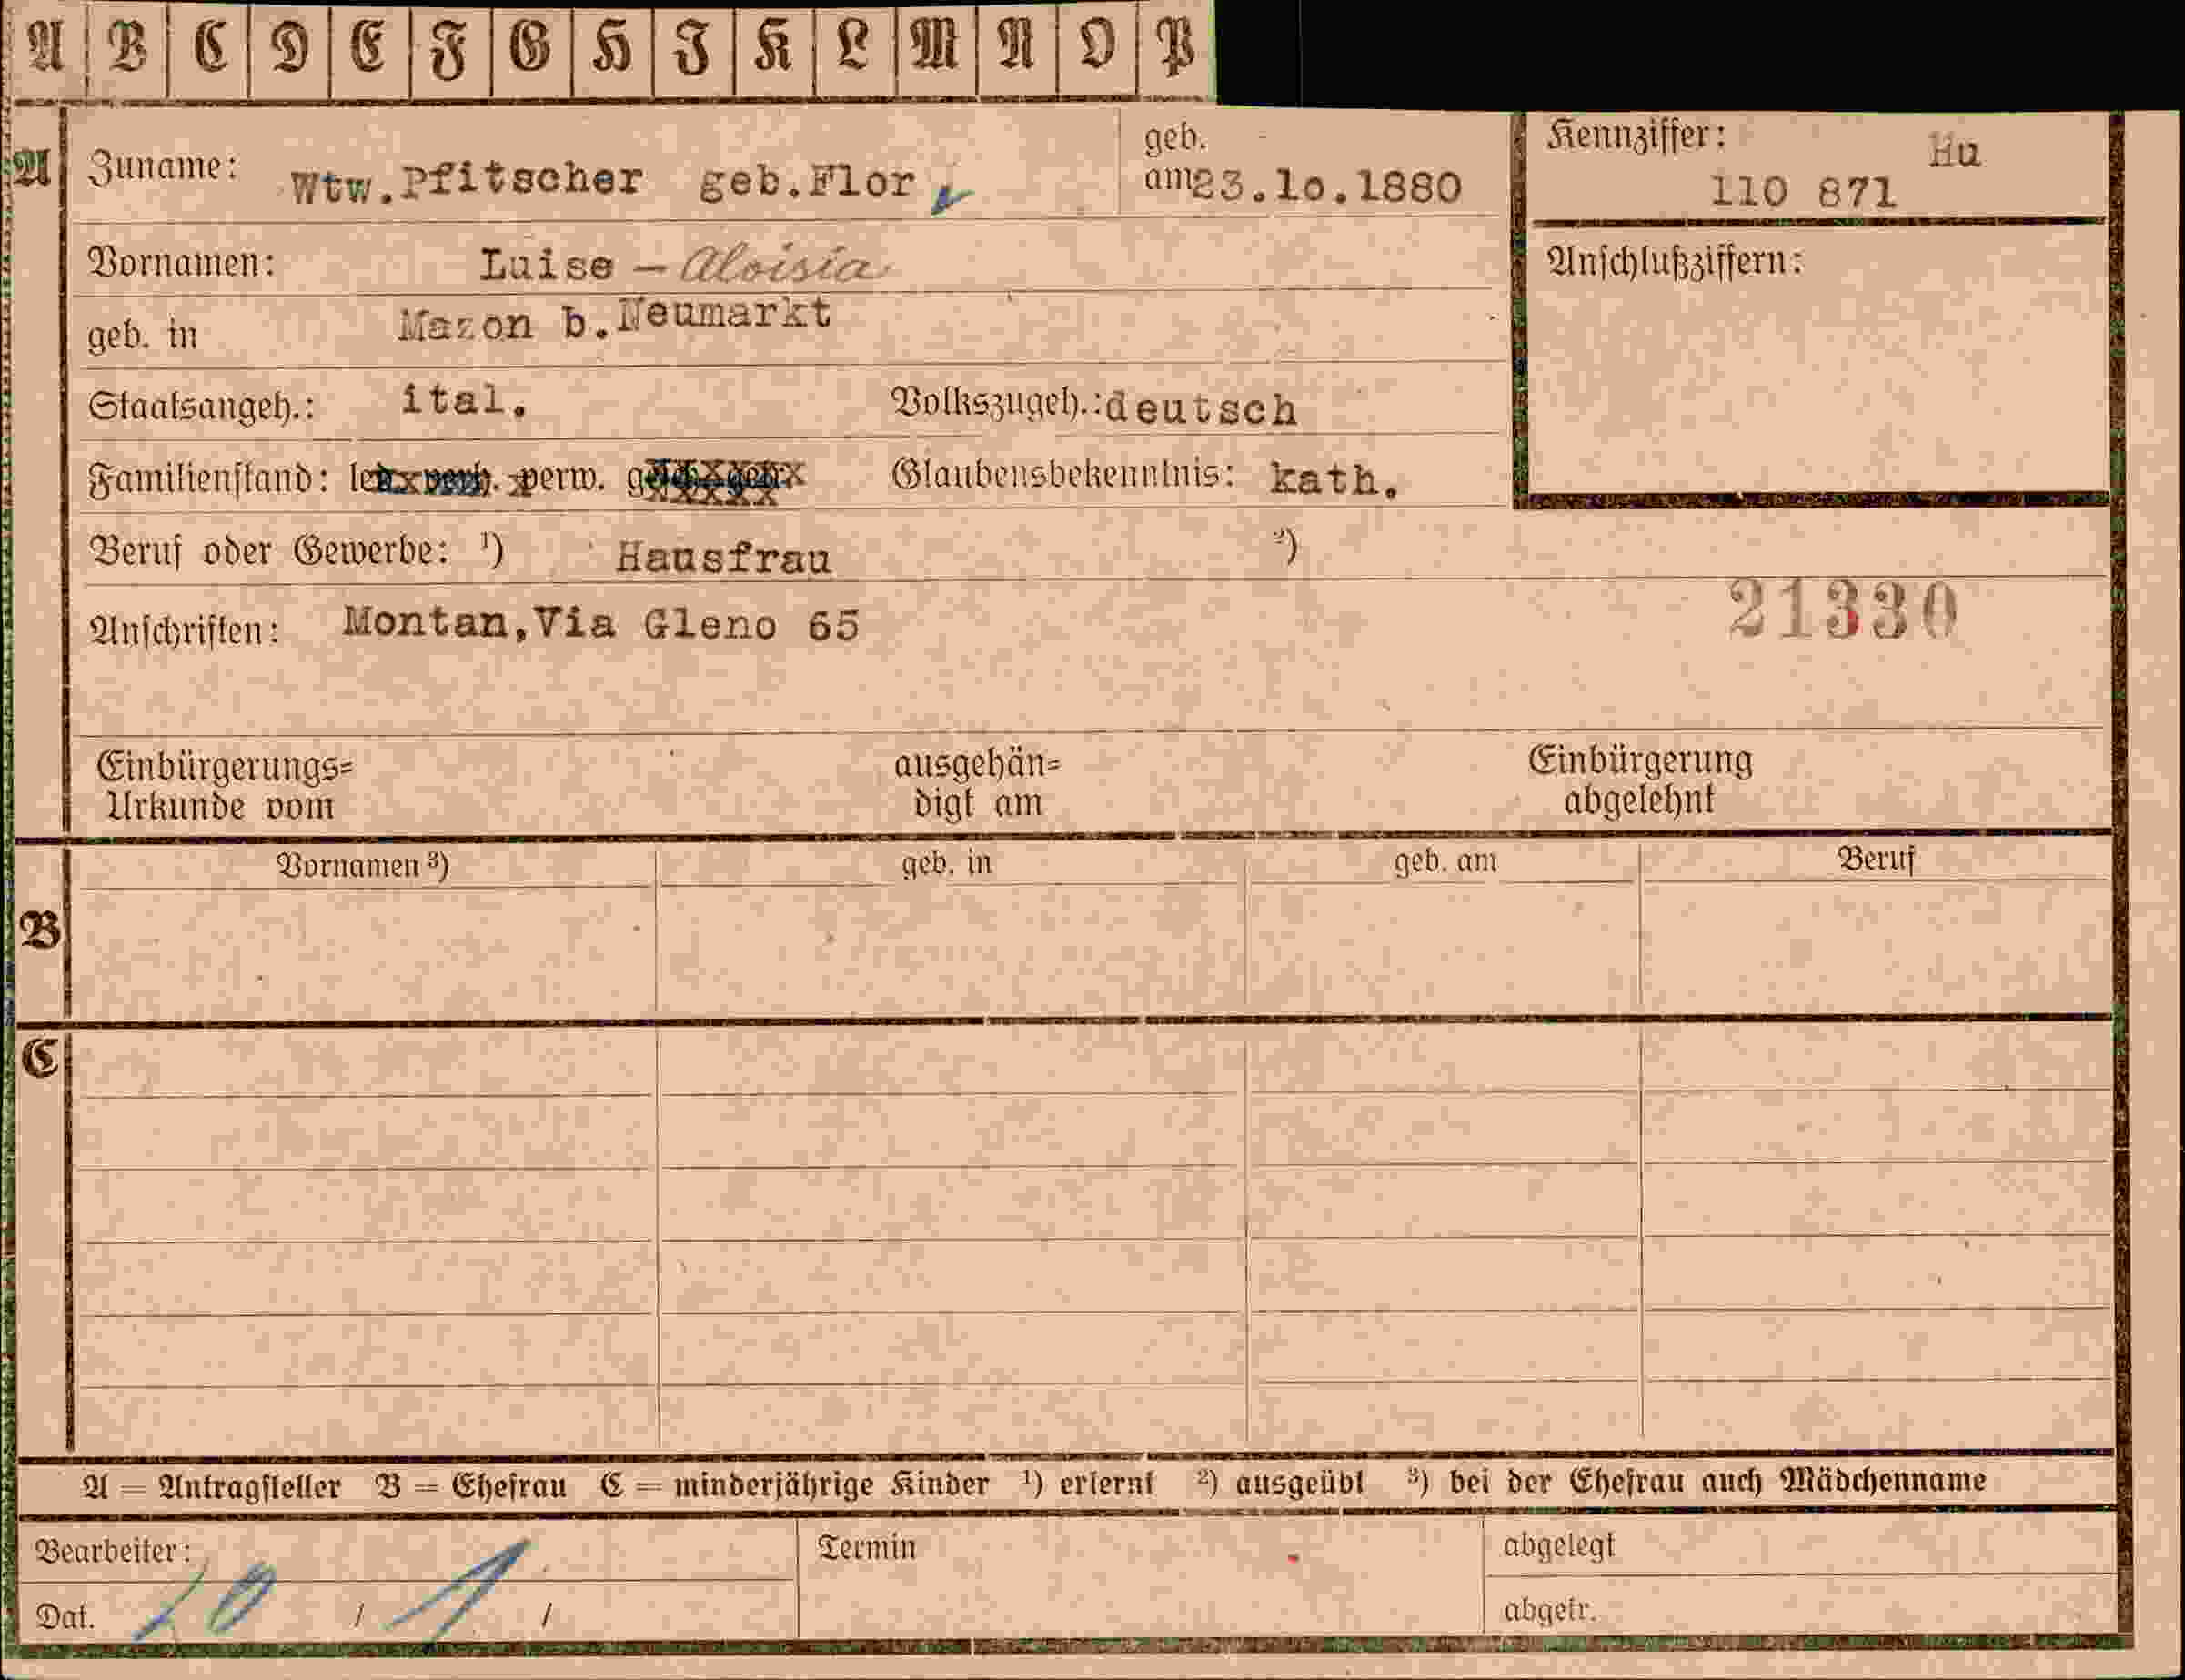 A B C D E F G H J K L M N O P
A Zuname: Wtw.Pfitscher geb.Flor geb. am 23.10.1880 Kennziffer: Hu
110 871
Vornamen: Luise – Aloisia Anschlußziffern:
geb. in Mazon b.Neumarkt
Staatsangeh.: ital. Volkszugeh.: deutsch
Familienstand: led. verh. verw. gesch. Glaubensbekenntnis: kath.
Beruf oder Gewerbe: ¹) Hausfrau ²)
21330
Anschriften: Montan,Via Gleno 65
Einbürgerungs= ausgehän= Einbürgerung
Urkunde vom digt am abgelehnt
Vornamen ³) geb. in geb. am Beruf
B
C
A = Antragsteller B = Ehefrau C = minderjährige Kinder ¹) erlernt ²) ausgeübt ³) bei der Ehefrau auch Mädchenname
Bearbeiter: Termin abgelegt
Dat. 20 / 1 / abgetr.